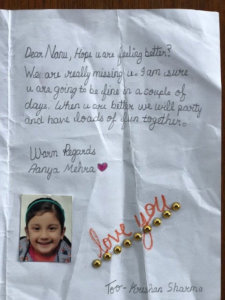 Dear Nanu, Hope u are feeling better?
We are really missing u. I am sure
u are going to be fine in a couple of
days. When u are better we will party
and have loads of fun together.
Warm Regards
Aanya Mehra
love you
Too- Krishan Sharma